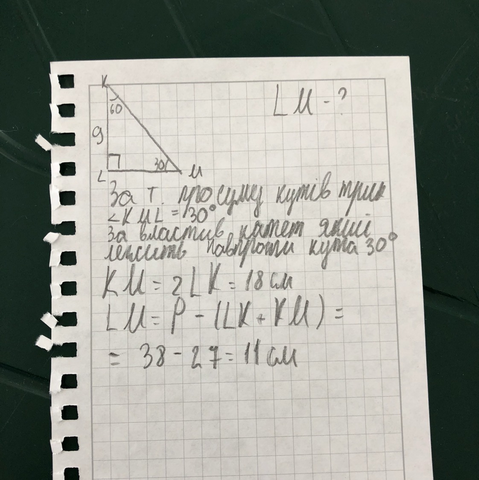 K
60
LM - ?
9
L
30
M
За т. про суму кутів трик
∠KML = 30°
за властив катет який
лежить навпроти кута 30°
KM = 2LK = 18 см
LM = P - (LK + KM) =
= 38 - 27 = 11 см